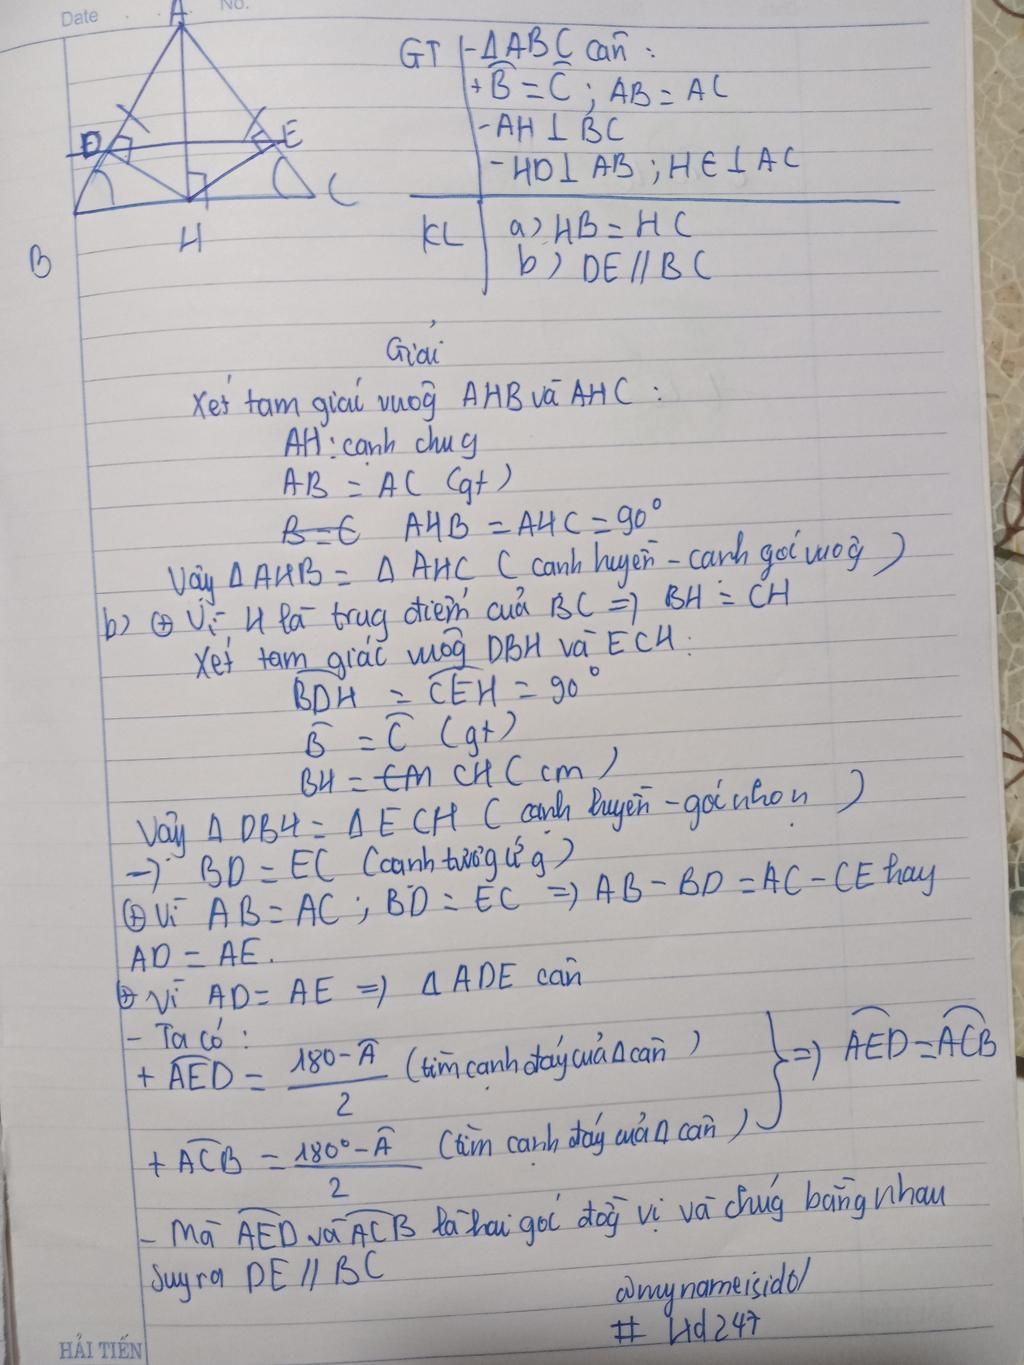 Date No.
A
D E
B H C
GT - ΔABC cân :
+ B̂ = Ĉ ; AB = AC
- AH ⊥ BC
- HD ⊥ AB ; HE ⊥ AC
KL a) HB = HC
b) DE // BC
Giải
Xét tam giái vuôg AHB và AHC :
AH : cạnh chug
AB = AC (gt)
B = C AHB = AHC = 90°
Vậy Δ AHB = Δ AHC ( canh huyền - canh goí vuôg )
b) ⊕ Vì H là trug điểm cuả BC => BH = CH
Xét tam giác vuôg DBH và ECH :
BDH = CEH = 90°
B̂ = Ĉ (gt)
BH = CM CH ( cm )
Vậy Δ DBH = Δ ECH ( canh huyền - goí nhọn )
-) BD = EC (canh tương ứg)
⊕ Vì AB = AC ; BD = EC => AB - BD = AC - CE hay
AD = AE.
⊕ Vì AD = AE => Δ ADE cân
- Ta có :
+ AED = 180 - Â / 2 (tìm cạnh đáy cuả Δ cân ) } => AED = ACB
+ ACB = 180° - Â / 2 (tìm cạnh đáy cuả Δ cân )
- Mà AED và ACB là hai goí đồg vị và chúg bằng nhau
Suy ra DE // BC
@mynameisidol
# Hd247
HẢI TIẾN